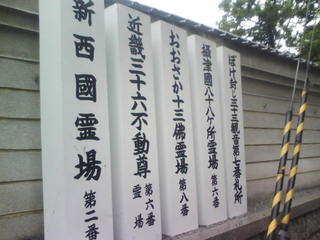 ぼけ封じ三十三観音第七番札所
摂津國八十八ヶ所霊場 第六番
おおさか十三佛霊場 第八番
近畿三十六不動尊 第六番霊場
新西國霊場 第二番